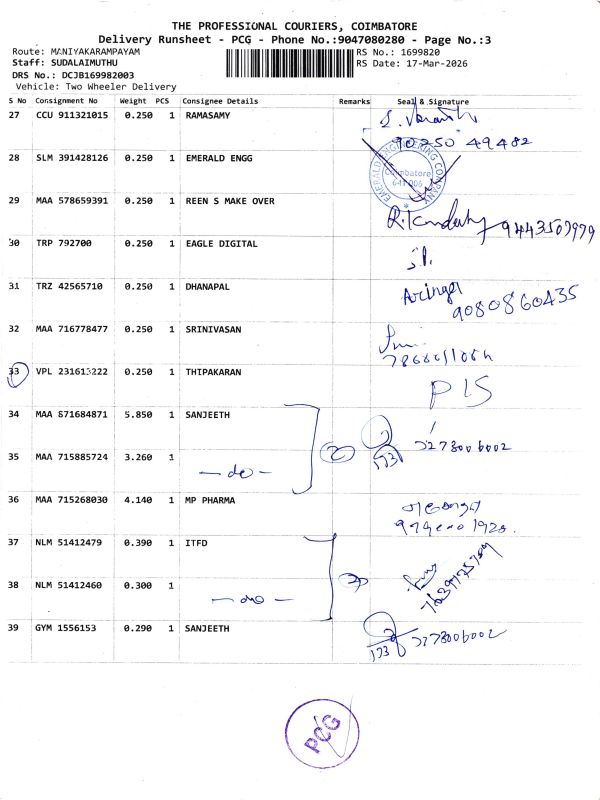 THE PROFESSIONAL COURIERS, COIMBATORE
Delivery Runsheet - PCG - Phone No.:9047080280 - Page No.:3
Route: MANIYAKARAMPAYAM
RS No.: 1699820
Staff: SUDALAIMUTHU
RS Date: 17-Mar-2026
DRS No.: DCJB169982003
Vehicle: Two Wheeler Delivery
S No Consignment No Weight PCS Consignee Details Remarks Seal & Signature
27 CCU 911321015 0.250 1 RAMASAMY
90250 49482
28 SLM 391428126 0.250 1 EMERALD ENGG
EMERALD ENGINEERING COMPANY
Coimbatore
641 006
29 MAA 578659391 0.250 1 REEN S MAKE OVER
9443507979
30 TRP 792700 0.250 1 EAGLE DIGITAL
31 TRZ 42565710 0.250 1 DHANAPAL
9080860435
32 MAA 716778477 0.250 1 SRINIVASAN
33 VPL 231613222 0.250 1 THIPAKARAN
34 MAA 871684871 5.850 1 SANJEETH
35 MAA 715885724 3.260 1
- do -
36 MAA 715268030 4.140 1 MP PHARMA
37 NLM 51412479 0.390 1 ITFD
38 NLM 51412460 0.300 1
- do -
39 GYM 1556153 0.290 1 SANJEETH
PCG